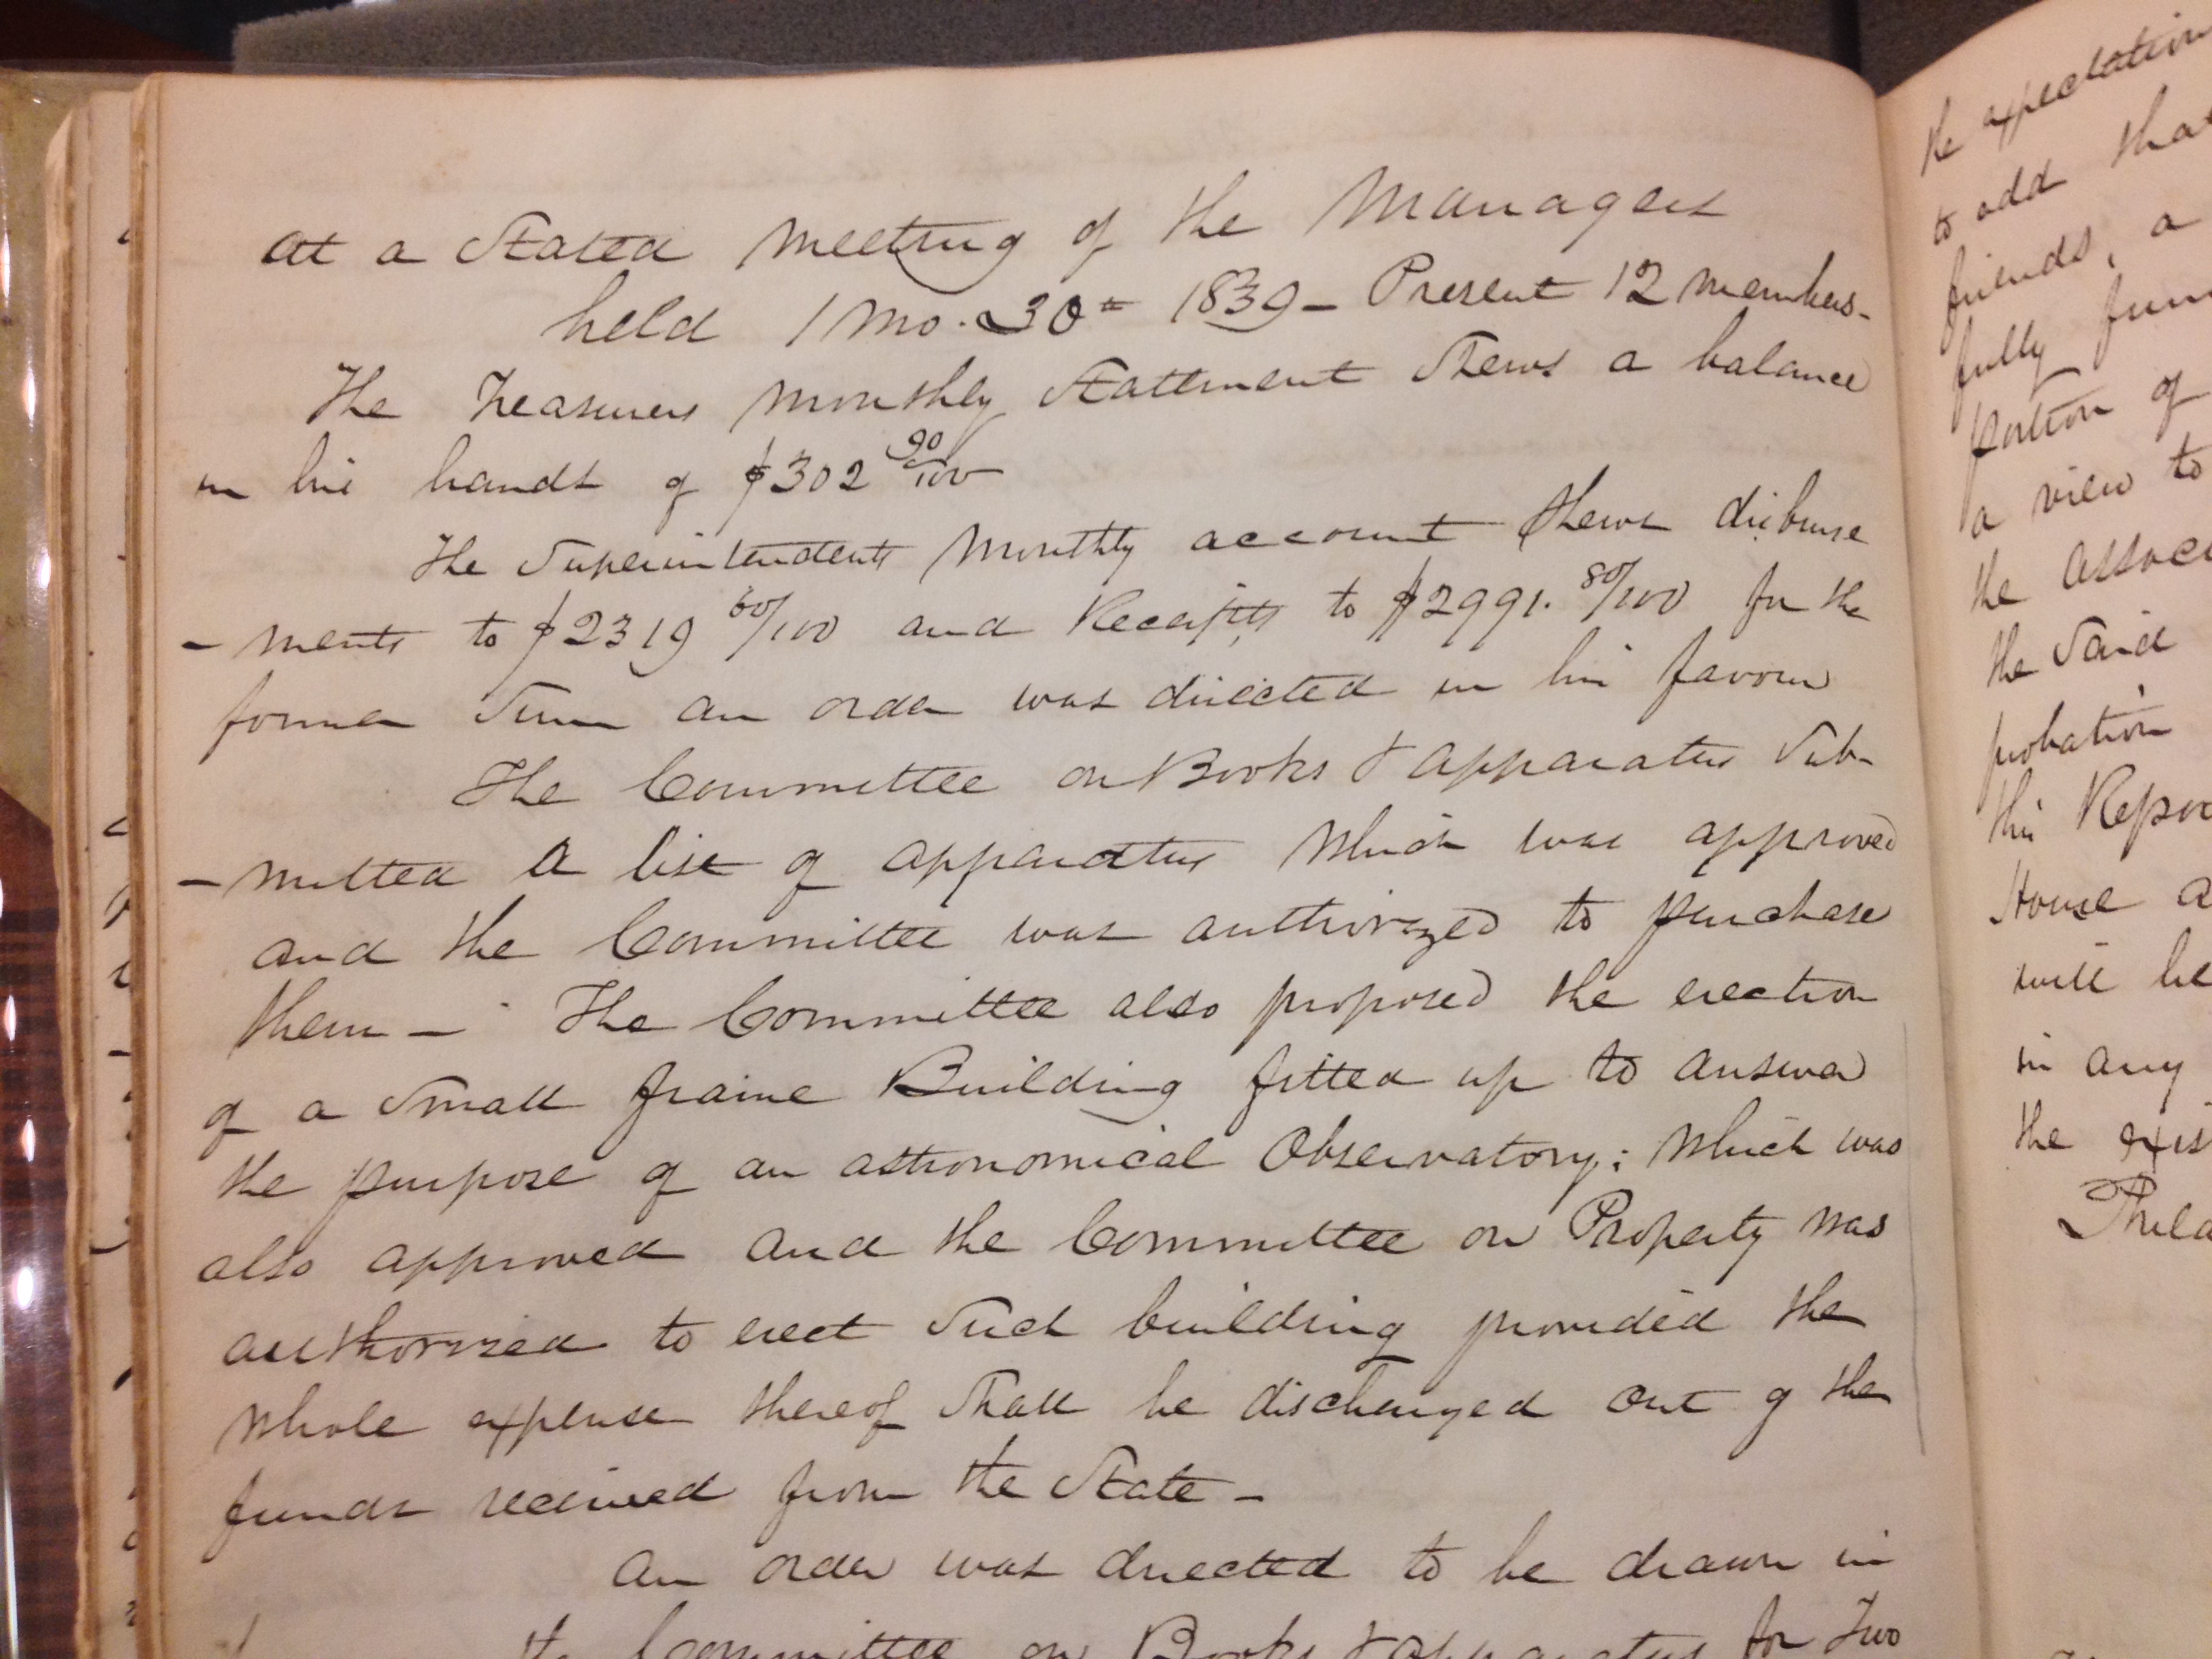 At a Stated Meeting of the Managers
held 1 mo. 30th 1839 – Present 12 members –
The Treasurers monthly Statement Shews a balance
in his hands of $302 90/100
The Superintendents Monthly account Shews disburse
– ments to $2319 60/100 and Receipts to $2991. 80/100 for the
former Sum an order was directed in his favour
The Committee on Books & Apparatus Sub-
– mitted a list of apparatus Which was approved
and the Committee was authorized to purchase
them – The Committee also proposed the erection
of a Small frame Building fitted up to answer
the purpose of an astronomical Observatory; Which was
also approved and the Committee on Property was
authorized to erect Such building provided the
Whole expense thereof Shall be discharged out of the
funds received from the State –
An order was directed to be drawn in
the Committee on Books & apparatus for Two
the expectation
to add that
friends, a
fully
portion of
a view to
the
the Said
probation
this
House
will be
in any
the